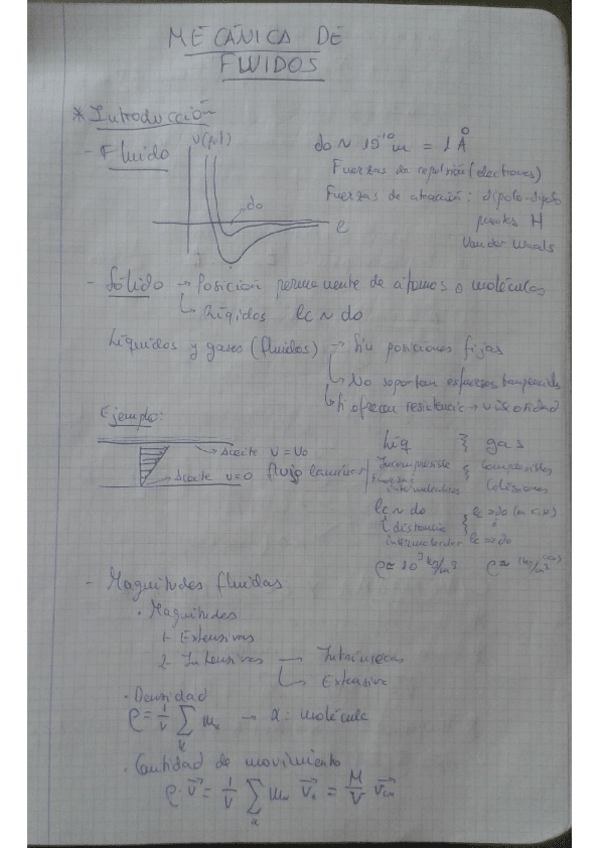 MECÁNICA DE
FLUIDOS
* Introducción
- Fluido
do ~ 10⁻¹⁰ m = 1 Å
Fuerzas de repulsión (electrones)
do
Fuerzas de atracción: dipolo-dipolo
puentes H
Van der Waals
- Sólido → Posición permanente de átomos o moléculas
↳ Rígidos lc ~ do
Líquidos y gases (fluidos) → Sin posiciones fijas
↳ No soportan esfuerzos tangenciales
↳ Si ofrecen resistencia → viscosidad
Ejemplo:
→ Aceite v = v₀
Aceite v=0 flujo laminar
Líq } gas
Incompresible } Compresibles
intermoleculares Colisiones
lc ~ do
distancia
intermolecular lc >> do
ρ ≈ 10³ kg/m³
- Magnitudes fluidas
· Magnitudes
1- Extensivas
2- Intensivas → Intrínsecas
↳ Extensiva
· Densidad
ρ = 1/V Σ m_α → α: molécula
α
· Cantidad de movimiento
ρ·v⃗ = 1/V Σ m_α v⃗_α = M/V v⃗_cm
α